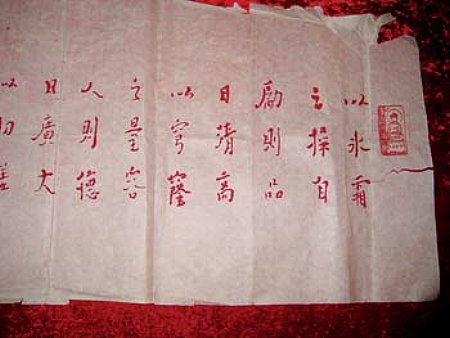 以氷霜
之操自
勵則品
日清高
以穹窿
之量容
人則德
日廣大
以切